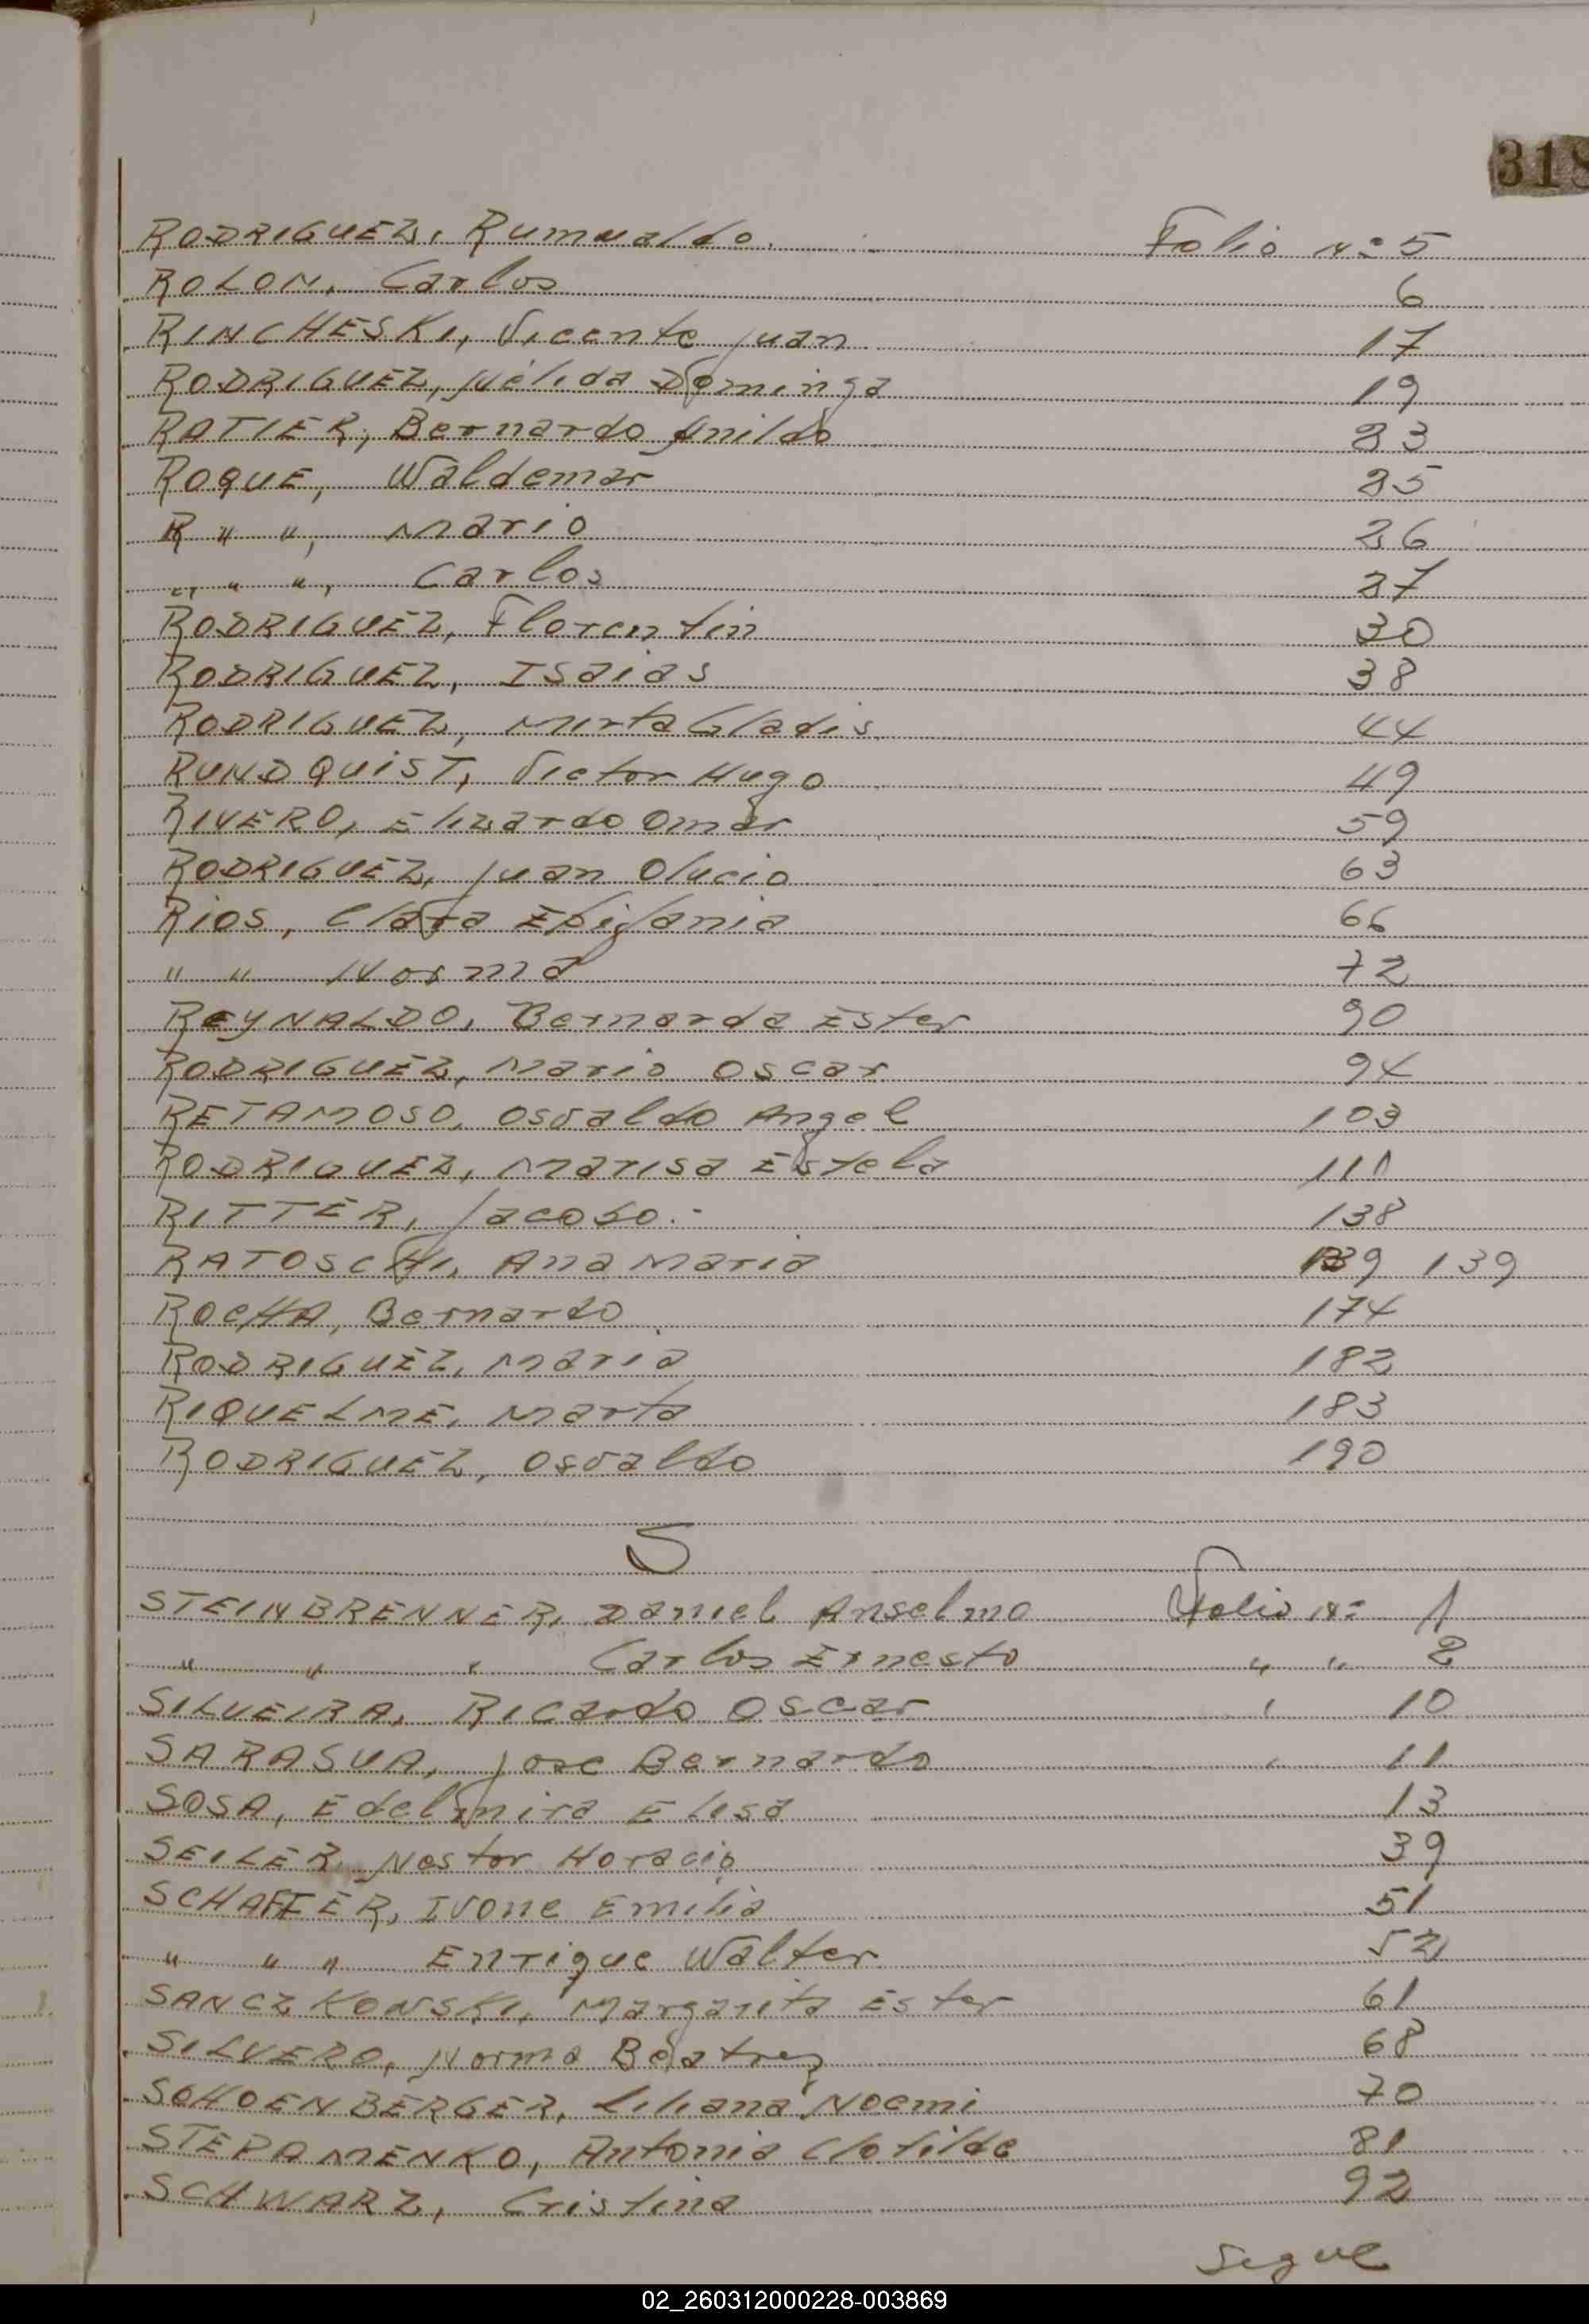 318
RODRIGUEZ, Rumualdo. Folio Nº 5
ROLON, Carlos 6
RINCHESKI, Vicente Juan 17
RODRIGUEZ, Nélida Dominga 19
RATIER, Bernardo Anildo 23
ROQUE, Waldemar 25
R " ", Mario 26
" " ", Carlos 27
RODRIGUEZ, Florentin 30
RODRIGUEZ, Isaias 38
RODRIGUEZ, Mirta Gladis 44
RUNDQUIST, Victor Hugo 49
RIVERO, Elizardo Omar 59
RODRIGUEZ, Juan Olucio 63
RIOS, Clara Epifania 66
" " Norma 72
REYNALDO, Bernarda Ester 90
RODRIGUEZ, Mario Oscar 94
RETAMOSO, Osvaldo Angel 103
RODRIGUEZ, Marisa Estela 110
RITTER, Jacobo.- 138
RATOSCHI, Ana Maria 139 139
ROCHA, Bernardo 174
RODRIGUEZ, Maria 182
RIQUELME, Marta 183
RODRIGUEZ, Osvaldo 190
S
STEINBRENNER, Daniel Anselmo Folio Nº 1
" " " Carlos Ernesto " " 2
SILVEIRA, Ricardo Oscar " 10
SARASUA, Jose Bernardo " 11
SOSA, Edelmira Elisa 13
SEILER, Nestor Horacio 39
SCHAFFER, Ivone Emilia 51
" " " Enrique Walter 52
SANCZKONSKI, Margarita Ester 61
SILVERO, Norma Beatrez 68
SCHOENBERGER, Liliana Noemi 70
STEPAMENKO, Antonia Clotilde 81
SCHWARZ, Cristina 92
Segue
02_260312000228-003869